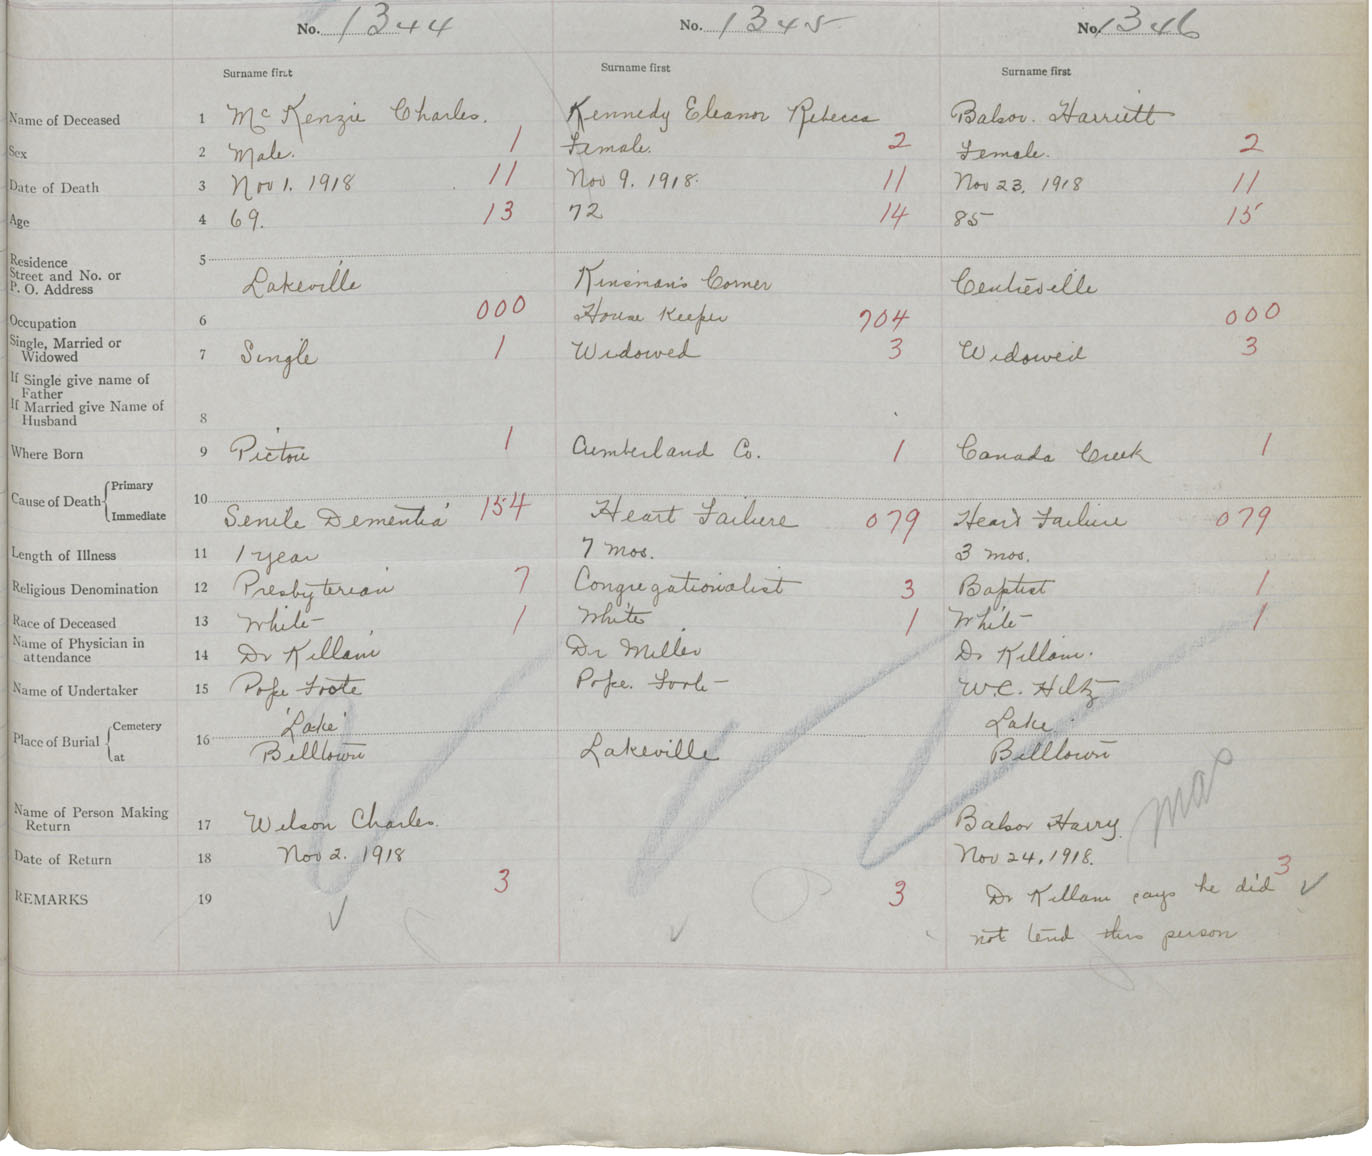 No. 1344 No. 1345 No. 1346
Surname first Surname first Surname first
Name of Deceased 1 McKenzie Charles. Kennedy Eleanor Rebecca Balsor. Harriett
Sex 2 Male. 1 Female. 2 Female. 2
Date of Death 3 Nov 1. 1918 11 Nov 9. 1918. 11 Nov 23. 1918 11
Age 4 69. 13 72 14 85 15
Residence 5
Street and No. or
P. O. Address Lakeville Kinsman's Corner Centreville
Occupation 6 000 House Keeper 704 000
Single, Married or
Widowed 7 Single 1 Widowed 3 Widowed 3
If Single give name of
Father
If Married give Name of
Husband 8
Where Born 9 Pictou 1 Cumberland Co. 1 Canada Creek 1
Cause of Death Primary 10
Immediate Senile Dementia 154 Heart Failure 079 Heart Failure 079
Length of Illness 11 1 year 7 mos. 3 mos.
Religious Denomination 12 Presbyterian 7 Congregationalist 3 Baptist 1
Race of Deceased 13 White 1 White 1 White 1
Name of Physician in
attendance 14 Dr Killam Dr Miller Dr Killam.
Name of Undertaker 15 Pope Foote Pope. Foote W.C. Hiltz
Place of Burial Cemetery 16 'Lake' Lake
at Billtown Lakeville Billtown
mas
Name of Person Making
Return 17 Wilson Charles. Balsor Harry.
Date of Return 18 Nov 2. 1918 Nov 24, 1918.
REMARKS 19 3 3 3
Dr Killam says he did
not tend this person